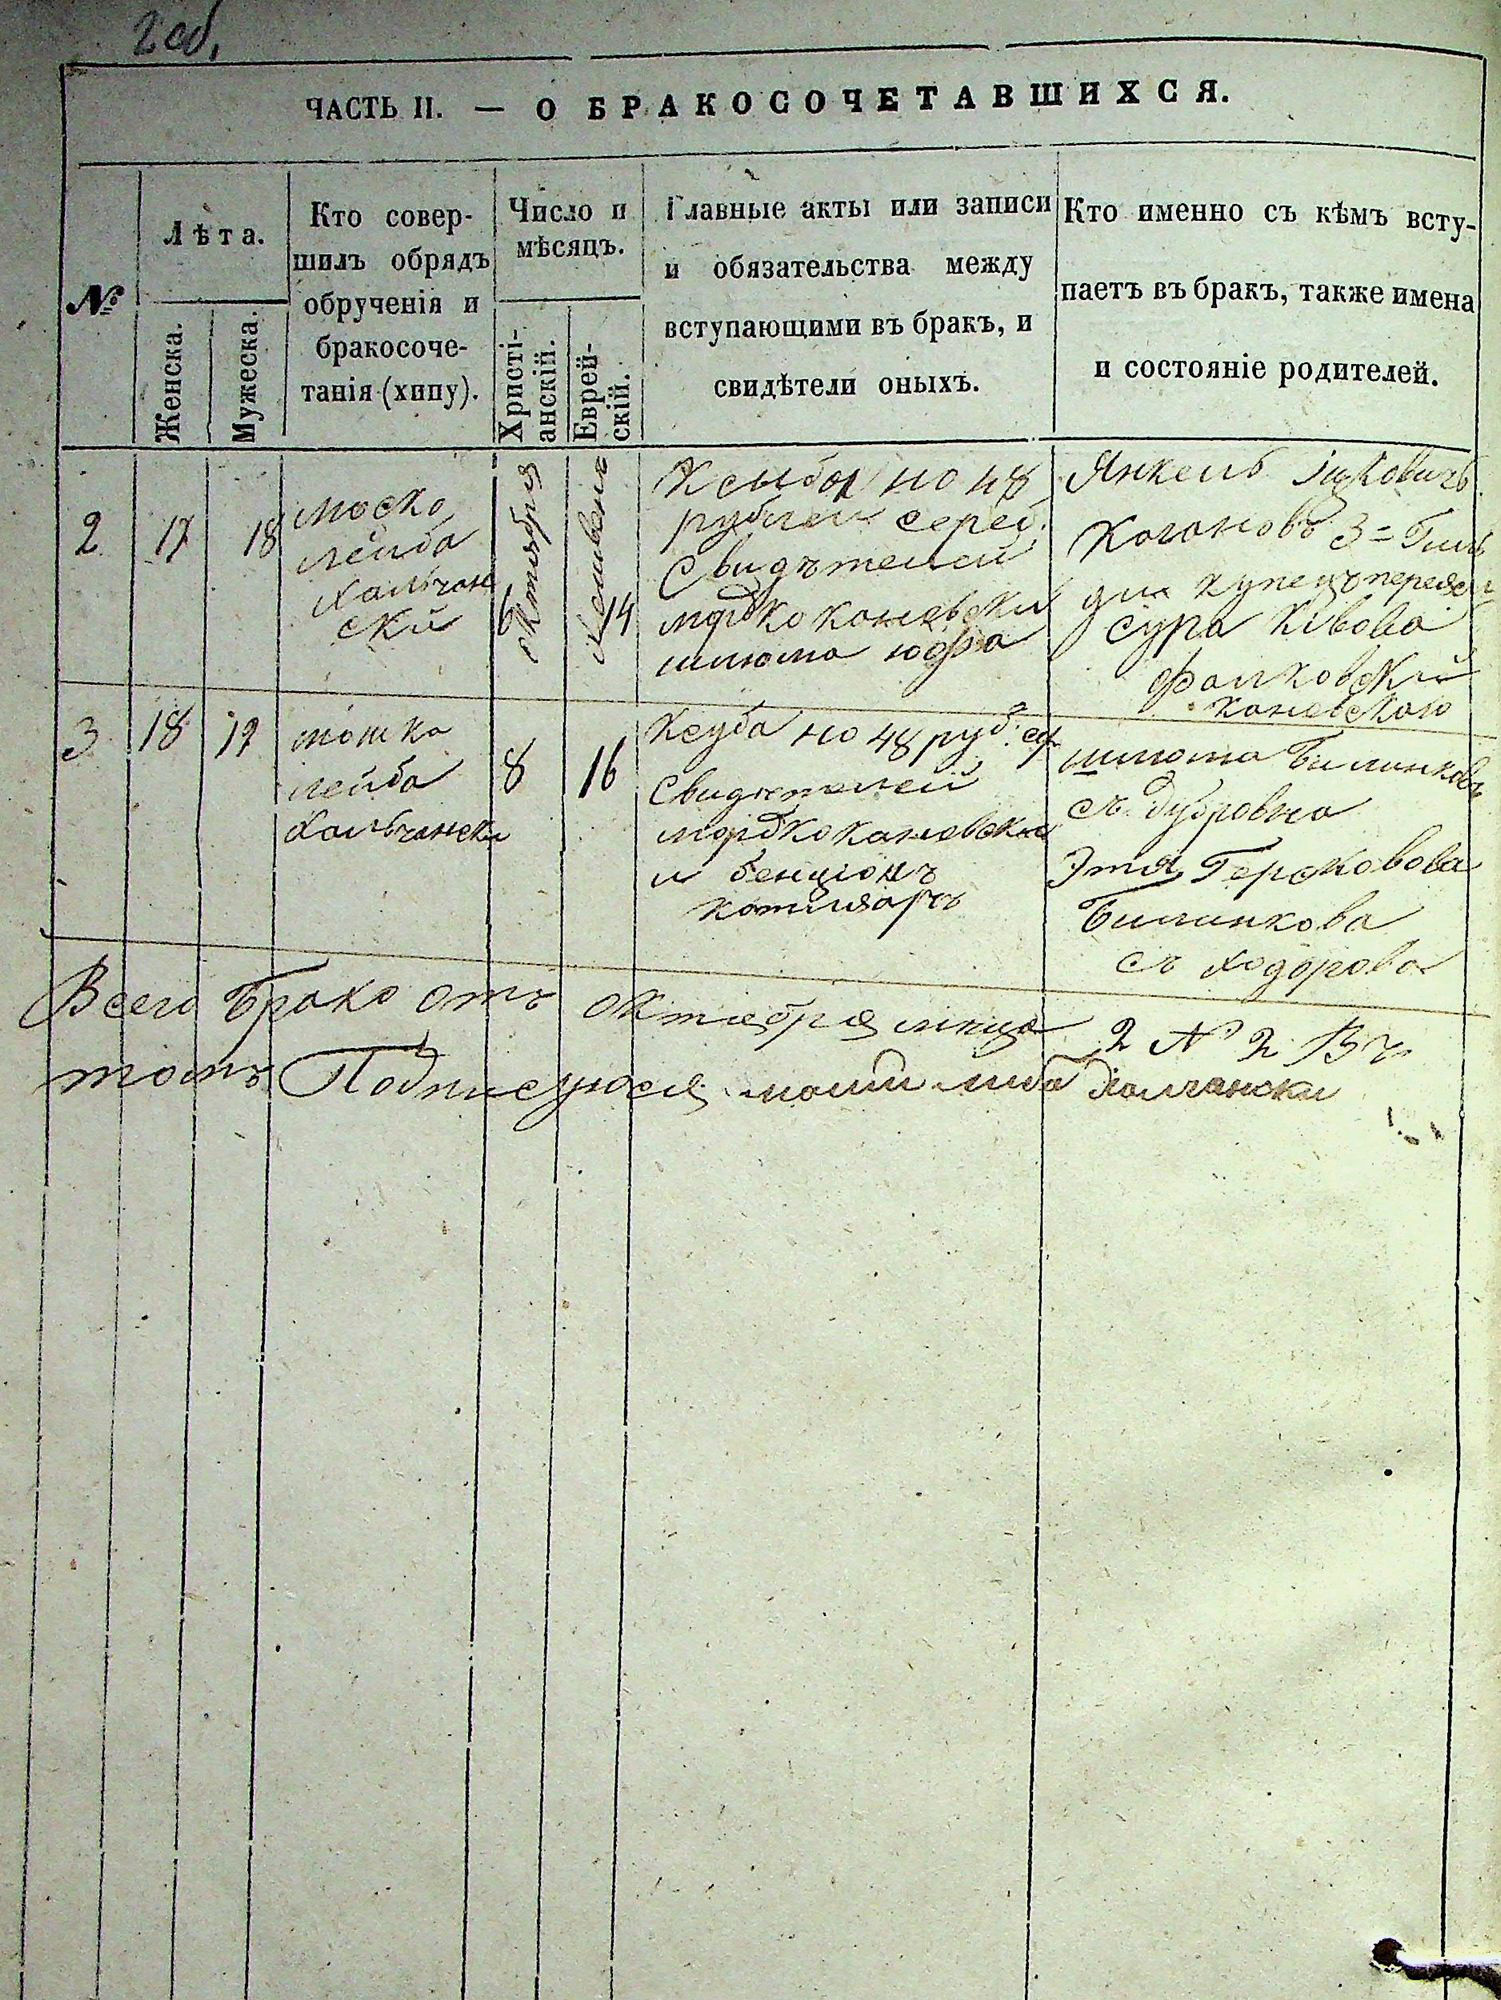 2 об.
ЧАСТЬ II. — О БРАКОСОЧЕТАВШИХСЯ.
№
Лѣта.
Женска.
Мужеска.
Кто совер-
шилъ обрядъ
обрученія и
бракосоче-
танія (хипу).
Число и
мѣсяцъ.
Христі-
анскій.
Еврей-
скій.
Главные акты или записи
и обязательства между
вступающими въ бракъ, и
свидѣтели оныхъ.
Кто именно съ кѣмъ всту-
паетъ въ бракъ, также имена
и состояніе родителей.
2
17
18
Моско
лейба
Халъчан
ский
6
октября
14
рублей сереб.
Свидѣтелей
мордко каневски
шлюма юдка
Янкель Ицковичъ
Когановъ 3=
купецъ
сура Кивова
Фалковский
каневского
3
18
19
мошко
лейба
Халъчански
8
16
Ксуба но 48 руб. се
Свидѣтелей
мордко каневски
и бенционъ
котляръ
шлюма Билинковъ
съ дубровна
Этя Герсковова
Билинкова
съ ходорова
Всего Брако отъ октября мица 2 № 2 Въ
томъ Подписуюся мошко либа Халчански